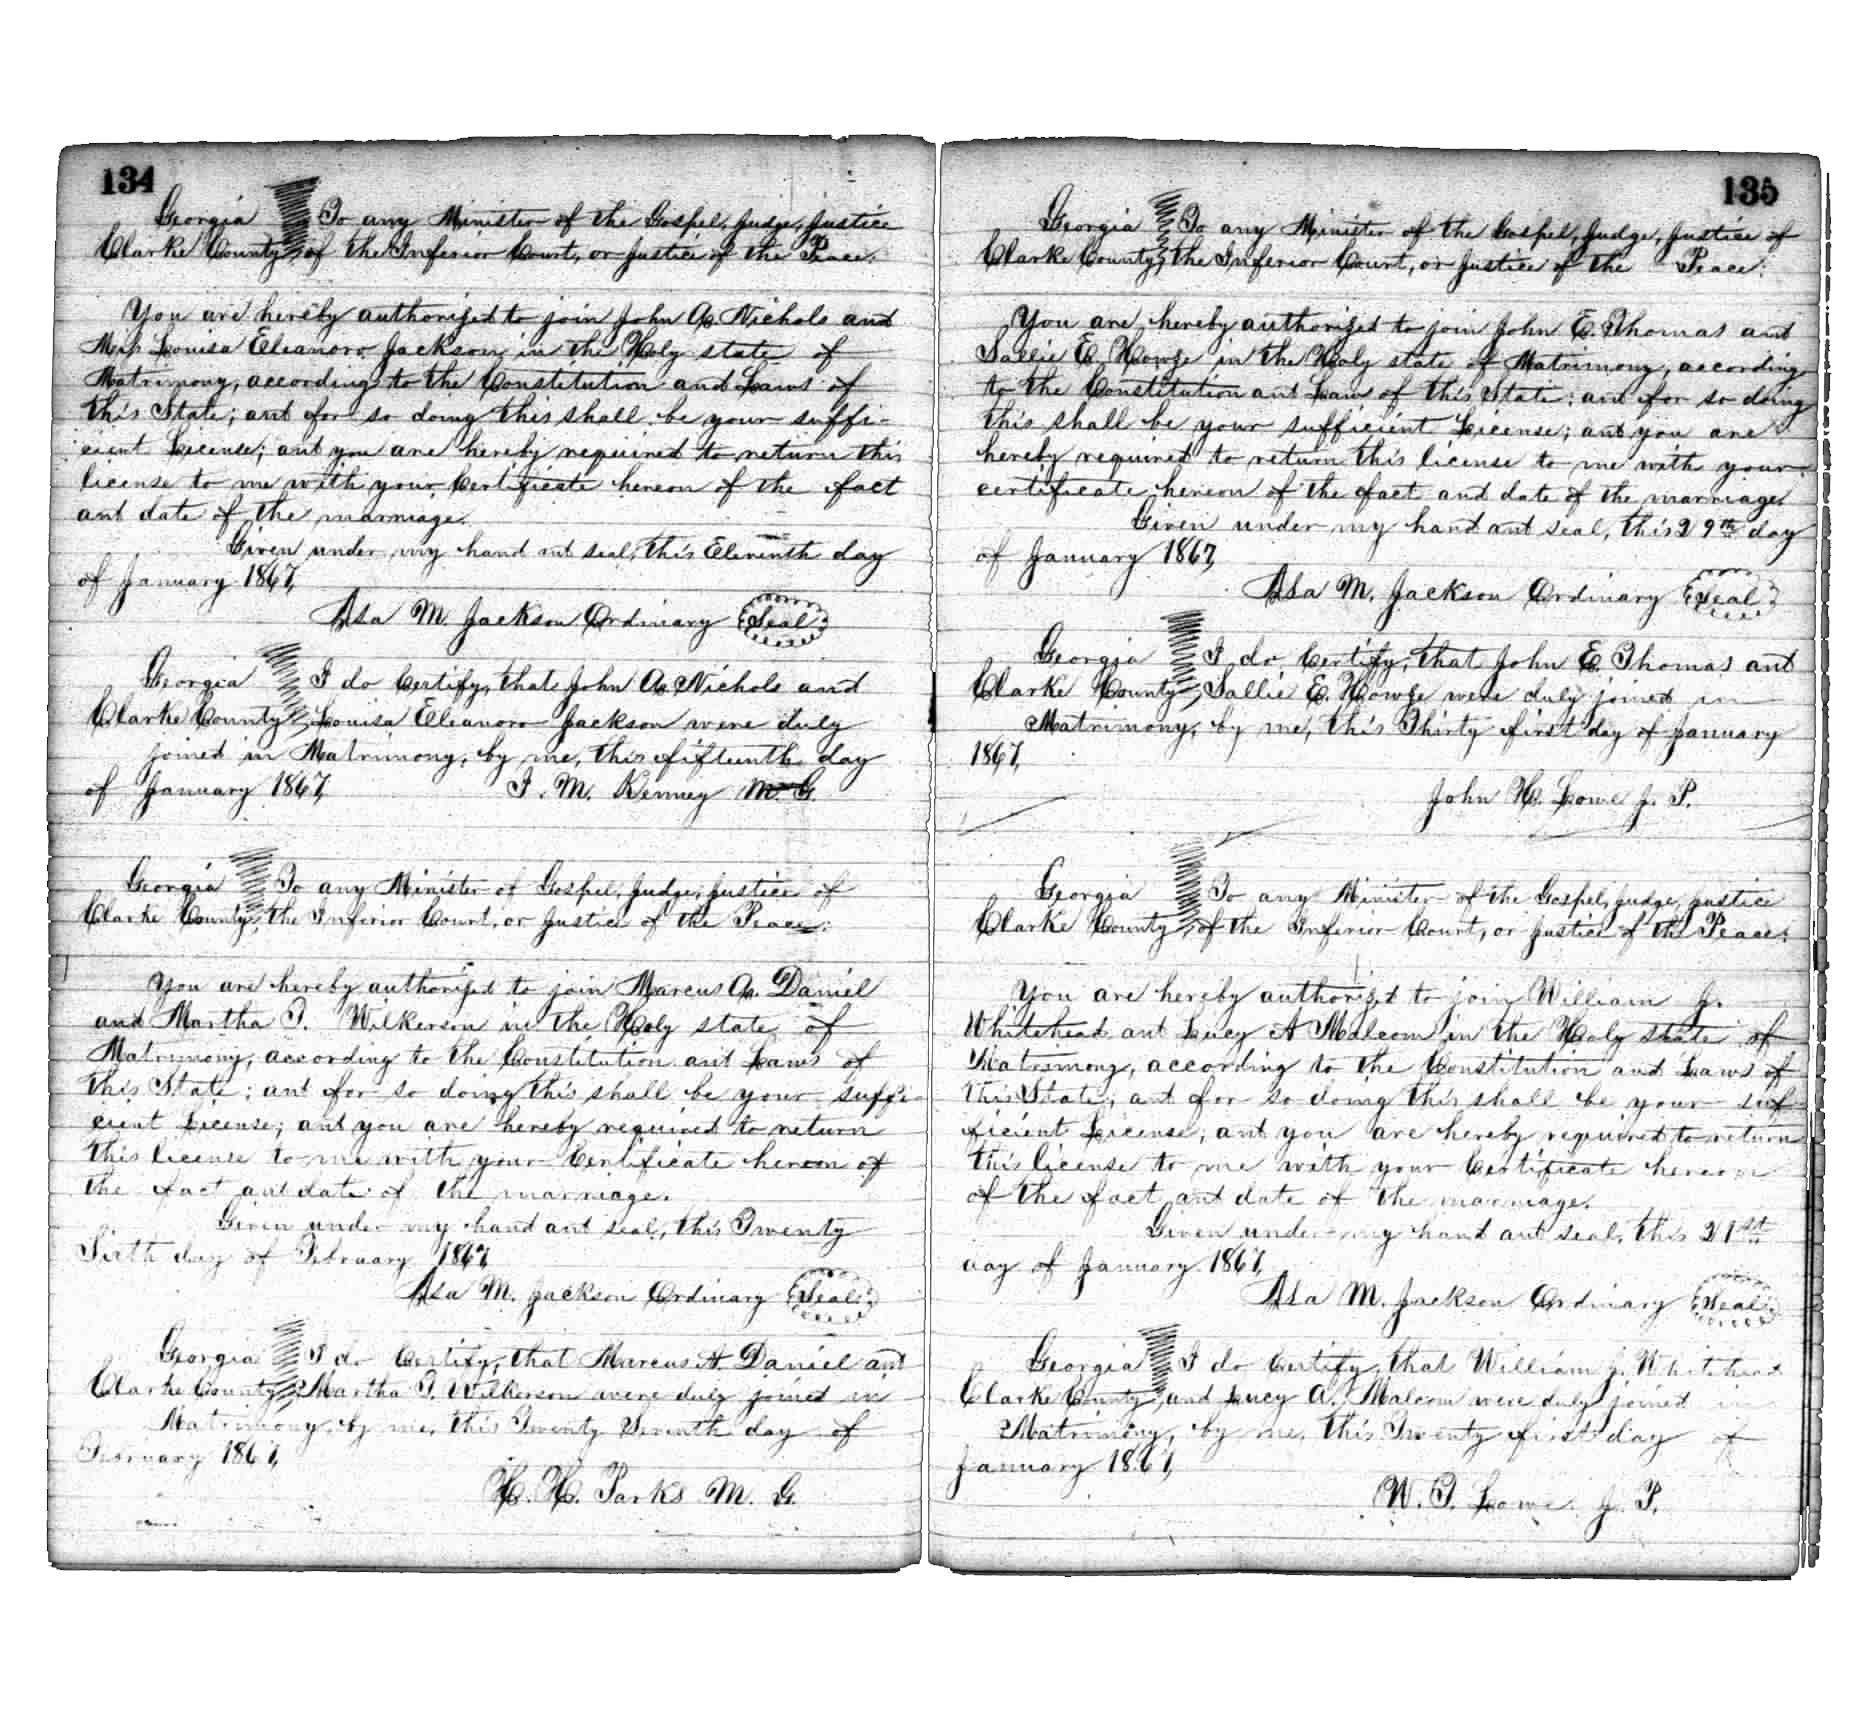 134
Georgia To any Minister of the Gospel, Judge, Justice
Clarke County, of the Inferior Court, or Justice of the Peace.
You are hereby authorized to join John A. Nichols and
Miss Louisa Eleanora Jackson, in the Holy state of
Matrimony, according to the Constitution and Laws of
this State; and for so doing this shall be your suffi-
cient License; and you are hereby required to return this
license to me with your Certificate hereon of the fact
and date of the marriage.
Given under my hand and seal, this Eleventh day
of January 1867,
Asa M. Jackson Ordinary Seal
Georgia I do Certify, that John A. Nichols and
Clarke County, Louisa Eleanora Jackson were duly
joined in Matrimony, by me, this fifteenth day
of January 1867, I. M. Kenney M. G.
Georgia To any Minister of Gospel, Judge, Justice of
Clarke County, the Inferior Court, or Justice of the Peace.
You are hereby authorized to join Marcus A. Daniel
and Martha T. Wilkerson in the Holy state of
Matrimony, according to the Constitution and Laws of
this State; and for so doing this shall be your suffi-
cient License; and you are hereby required to return
this license to me with your Certificate hereon of
the fact and date of the marriage.
Given under my hand and seal, this Twenty
Sixth day of February 1867
Asa M. Jackson Ordinary Seal
Georgia I do Certify, that Marcus A. Daniel and
Clarke County, Martha T. Wilkerson were duly joined in
Matrimony, by me, this Twenty Seventh day of
February 1867,
H. H. Parks M. G.
135
Georgia To any Minister of the Gospel, Judge, Justice of
Clarke County, the Inferior Court, or Justice of the Peace:
You are hereby authorized to join John E. Thomas and
Sallie E. Howze in the Holy state of Matrimony, according
to the Constitution and Law of this State; and for so doing
this shall be your sufficient License; and you are
hereby required to return this license to me with your
certificate hereon of the fact and date of the marriage.
Given under my hand and seal, this 29th day
of January 1867,
Asa M. Jackson Ordinary Seal
Georgia I do Certify, that John E. Thomas and
Clarke County, Sallie E. Howze were duly joined in
Matrimony, by me, this Thirty first day of January
1867,
John H. Lowe J. P.
Georgia To any Minister of the Gospel, Judge, Justice
Clarke County, of the Inferior Court, or Justice of the Peace.
You are hereby authorized to join William J.
Whitehead and Lucy A Malcom in the Holy state of
Matrimony, according to the Constitution and Laws of
this State, and for so doing this shall be your suf
ficient License; and you are hereby required to return
this license to me with your Certificate hereon
of the fact and date of the marriage.
Given under my hand and seal, this 21st
day of January 1867,
Asa M. Jackson Ordinary Seal
Georgia I do Certify, that William J. Whitehead
Clarke County, and Lucy A. Malcom were duly joined in
Matrimony, by me, this Twenty first day of
January 1867,
W. T. Lowe J. P.